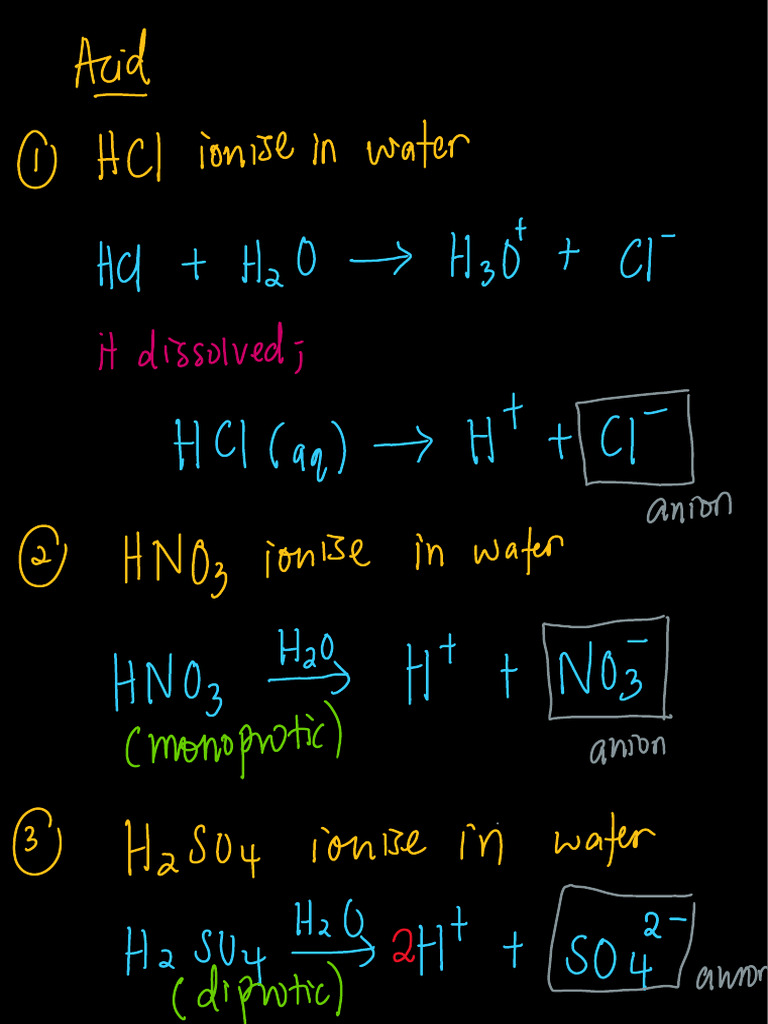 Acid
① HCl ionise in water
HCl + H₂O → H₃O⁺ + Cl⁻
it dissolved;
HCl (aq) → H⁺ + Cl⁻
anion
② HNO₃ ionise in water
H₂O
HNO₃ → H⁺ + NO₃⁻
(monoprotic)
anion
③ H₂SO₄ ionise in water
H₂O
H₂SO₄ → 2H⁺ + SO₄²⁻
anion
(diprotic)